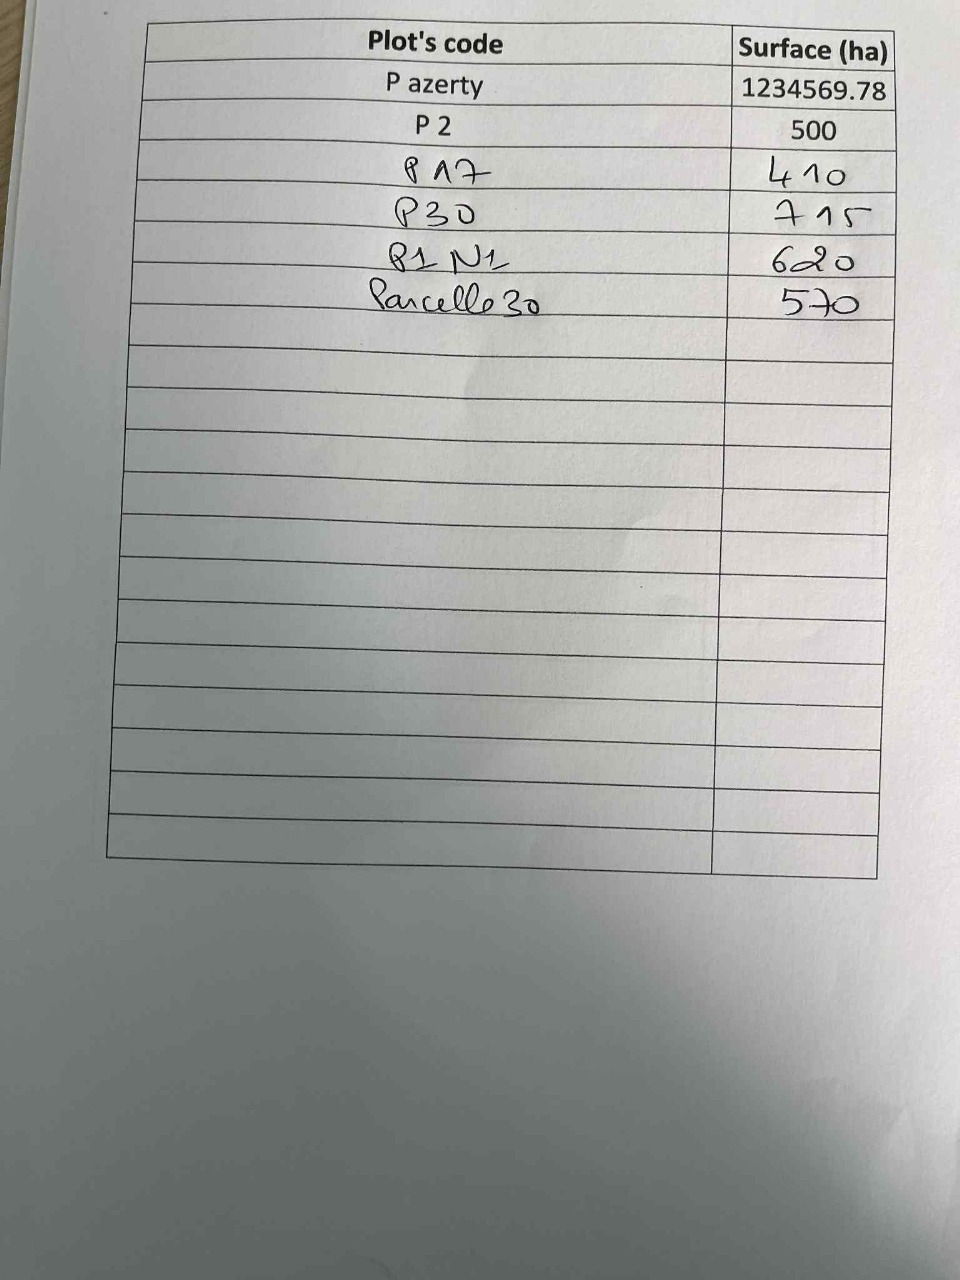 Plot's code Surface (ha)
P azerty 1234569.78
P 2 500
P 17 410
P30 715
P1 N1 620
Parcelle 30 570